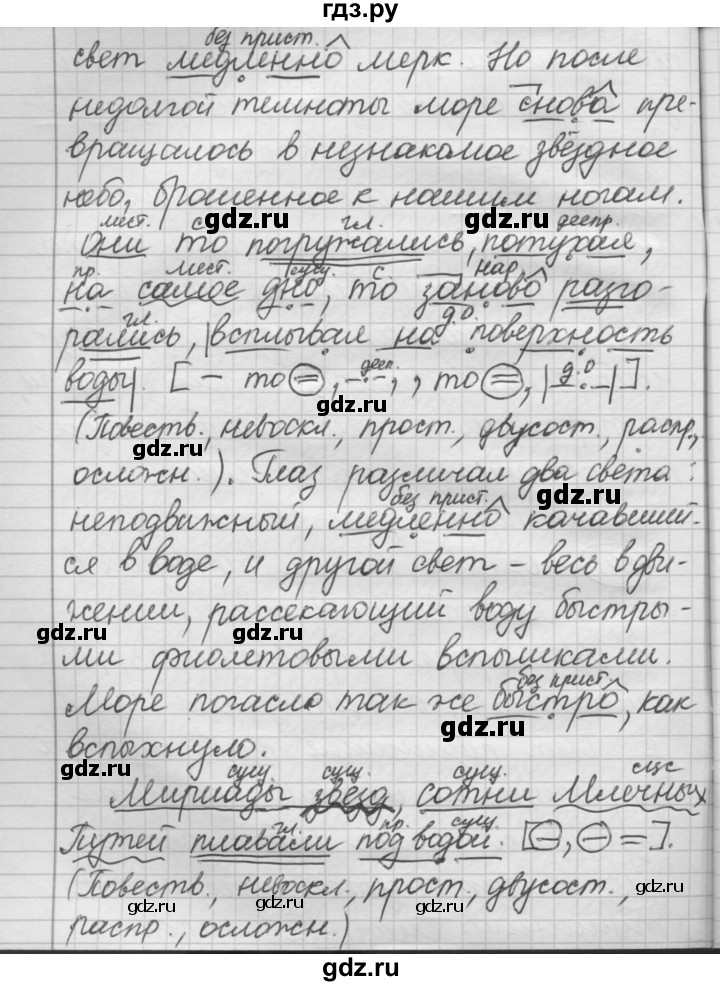 гдз.ру
без прист.
свет медленно мерк. Но после
недолгой темноты море снова пре-
вращалось в незнакомое звёздное
небо, брошенное к нашим ногам.
мест. с gdz.ru гл. gdz.ru деепр.
Они то погружались, потухая,
пр. мест. сущ. с нар.
на самое дно, то заново разго-
гл. д.о.
рались, |всплывая на поверхность
gdz.ru gdz.ru gdz.ru
деep. д.о
воды|. [– то =, , то =, | |].
(Повеств., невоскл., прост., двусост., распр.,
gdz.ru gdz.ru
осложн.). Глаз различал два света:
без прист. gdz.ru
неподвижный, медленно качавший-
ся в воде, и другой свет – весь в дви-
жении, рассекающий воду быстры-
gdz.ru gdz.ru
ми фиолетовыми вспышками.
без прист.
Море погасло так же быстро, как
gdz.ru
вспыхнуло.
gdz.ru gdz.ru
сущ. сущ. сущ. сущ.
Мириады звёзд, сотни Млечных
гл. пр. сущ.
Путей плавали под водой. [–, – =].
gdz.ru gdz.ru gdz.ru
(Повеств., невоскл., прост., двусост.,
gdz.ru gdz.ru gdz.ru
распр., осложн.)
gdz.ru
gdz.ru